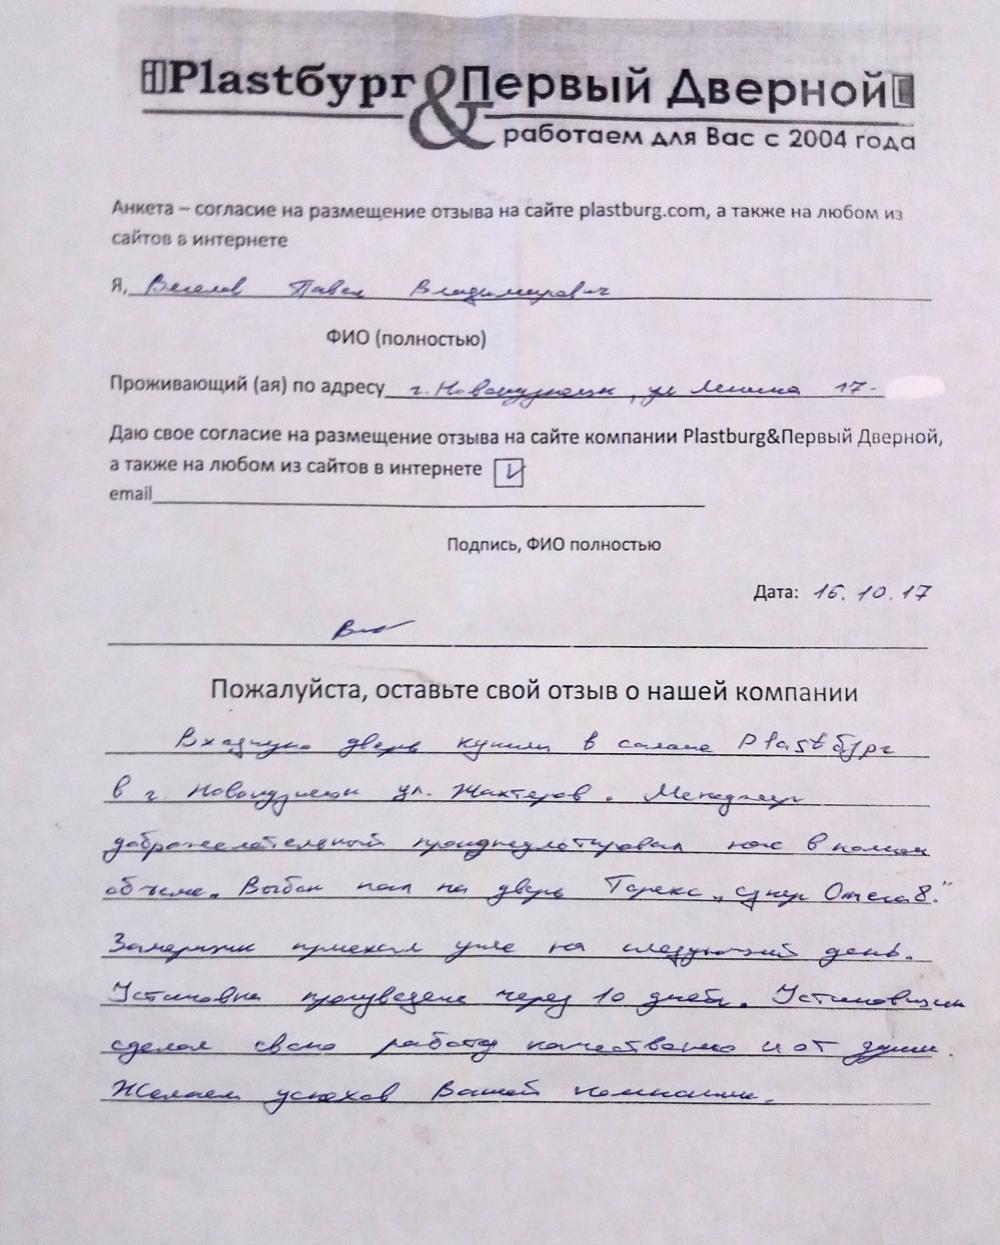 Plastбург & Первый Дверной
работаем для Вас с 2004 года
Анкета – согласие на размещение отзыва на сайте plastburg.com, а также на любом из
сайтов в интернете
Я, Веселов Павел Владимирович
ФИО (полностью)
Проживающий (ая) по адресу г. Новокузнецк, ул Ленина 17-
Даю свое согласие на размещение отзыва на сайте компании Plastburg&Первый Дверной,
а также на любом из сайтов в интернете V
email
Подпись, ФИО полностью
Дата: 16.10.17
Пожалуйста, оставьте свой отзыв о нашей компании
Входную дверь купили в салоне Plastбург
в г. Новокузнецк ул. Шахтеров. Менеджер
доброжелательный проконсультировал нас в полном
объеме. Выбор пал на дверь Торекс „супер Омега 8."
Замерщик приехал уже на следующий день.
Установка произведена через 10 дней. Установщик
сделал свою работу качественно и от души.
Желаем успехов Вашей компании.